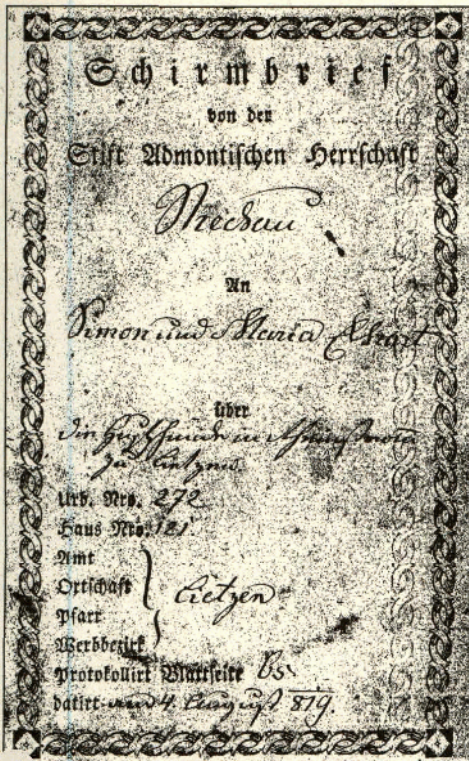 Schirmbrief
von der
Stift Admontischen Herrschaft
Strechau
An
Simon und Maria
über
die in
zu Lietzen
Urb. Nro. 272
Haus Nro. 121
Amt
Ortschaft
Lietzen
Pfarr
Werbbezirk
Protokollirt Blattseite 65
datirt 4. August 819.